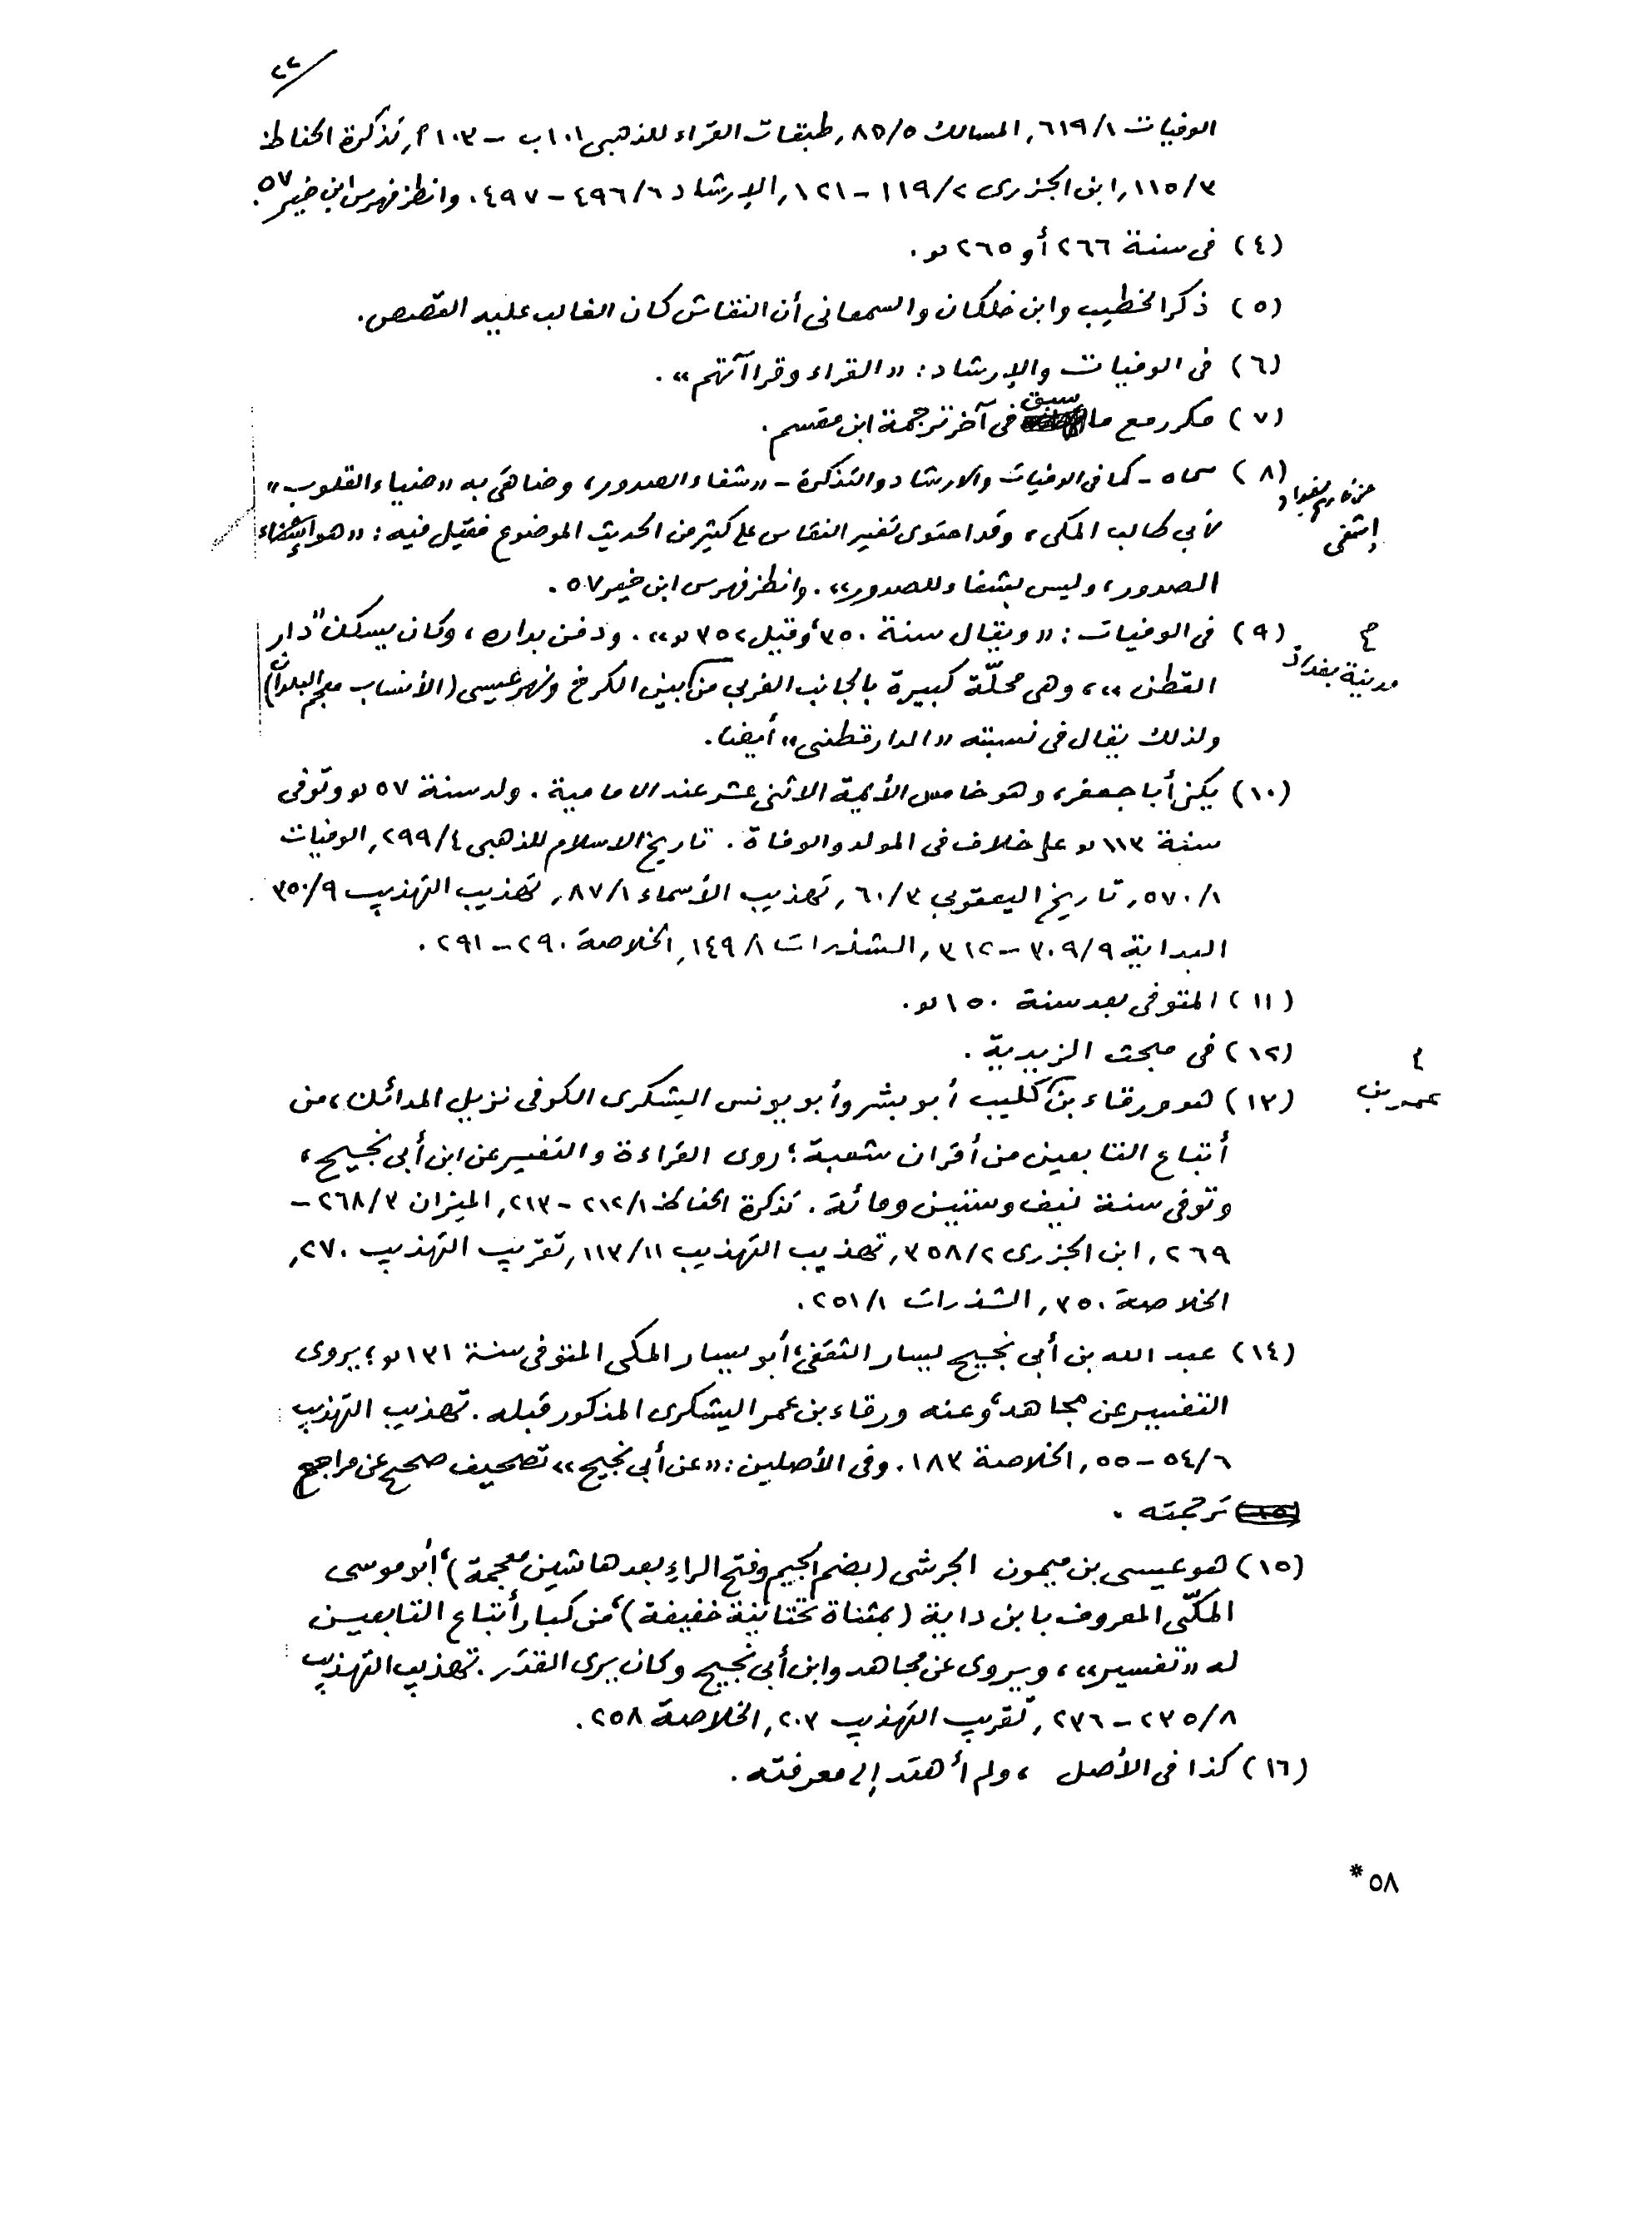 ٢٢
الوفيات ٦١٩/١, المسالك ٨٥/٥, طبقات القراء للذهبى ١٠١ب – ١٠٣أ, تذكرة الحفاظ
١١٥/٣, ابن الجزرى ١١٩/٢ – ١٢١, الإرشاد ٤٩٦/٦ – ٤٩٧. وانظر فهرس ابن خير ٥٧.
(٤) فى سنة ٢٦٦ أو ٢٦٥ هـ.
(٥) ذكر الخطيب وابن خلكان والسمعانى أن النقاش كان الغالب عليه القصص.
(٦) فى الوفيات والإرشاد: «القراء وقراآتهم».
(٧) مكرر مع ما سبق فى آخر ترجمة ابن مقسم.
(٨) سماه – كما فى الوفيات والارشاد والتذكرة – «شفاء الصدور» وضاهى به «ضياء القلوب»
لأبي طالب المكى، وقد احتوى تفسير النقاش على كثير من الحديث الموضوع فقيل فيه: «هو إشفاء
الصدور، وليس بشفاء للصدور». وانظر فهرس ابن خير ٥٧.
عن تاريخ بغداد
إشفى
(٩) فى الوفيات: «ويقال سنة ٣٥٠، وقيل ٣٥٢ هـ». ودفن بداره، وكان يسكن "دار
القطن»، وهى محلّة كبيرة بالجانب الغربي من بين الكرخ ونهر عيسى (الأنساب معجم البلدان)
ولذلك يقال فى نسبته «الدارقطنى» أيضا.
مدينة بغداد
(١٠) يكنى أبا جعفر، وهو خامس الأئمة الاثنى عشر عند الامامية. ولد سنة ٥٧ هـ وتوفى
سنة ١١٣ هـ على خلاف فى المولد والوفاة. تاريخ الاسلام للذهبى ٢٩٩/٤, الوفيات
٥٧٠/١, تاريخ اليعقوبي ٦٠/٣, تهذيب الأسماء ٨٧/١, تهذيب التهذيب ٣٥٠/٩
البداية ٣٠٩/٩ – ٣١٢, الشذرات ١٤٩/١, الخلاصة ٢٩٠ – ٢٩١.
(١١) المتوفى بعد سنة ١٥٠ هـ.
(١٢) فى مبحث الزيدية.
(١٣) هو ورقاء بن كليب أبو بشر وأبو يونس اليشكرى الكوفى نزيل المدائن، من
عمر بن
أتباع التابعين من أقران شعبة؛ روى القراءة والتفسير عن ابن أبى نجيح،
وتوفى سنة نيف وستين ومائة. تذكرة الحفاظ ٢١٢/١ – ٢١٣, الميزان ٢٦٨/٣ –
٢٦٩, ابن الجزرى ٣٥٨/٢, تهذيب التهذيب ١١٣/١١, تقريب التهذيب ٢٧٠,
الخلاصة ٣٥٠, الشذرات ٢٥١/١.
(١٤) عبد الله بن أبي نجيح يسار الثقفى، أبو يسار المكى المتوفى سنة ١٣١ هـ؛ يروى
التفسير عن مجاهد، وعنه ورقاء بن عمر اليشكرى المذكور قبله. تهذيب التهذيب
٥٤/٦ – ٥٥, الخلاصة ١٨٣. وفى الأصلين: «عن أبى نجيح» تصحيف صحح عن مراجع
ترجمته.
(١٥) هو عيسى بن ميمون الجرشى (بضم الجيم وفتح الراء بعدها شين معجمة)، أبو موسى
المكّى المعروف بابن داية (بمثناة تحتانية خفيفة)، من كبار أتباع التابعين
له «تفسير»، ويروى عن مجاهد وابن أبى نجيح وكان يرى القدَر. تهذيب التهذيب
٢٣٥/٨ – ٢٣٦, تقريب التهذيب ٢٠٣, الخلاصة ٢٥٨.
(١٦) كذا فى الأصل، ولم أهتد إلى معرفته.
٥٨*